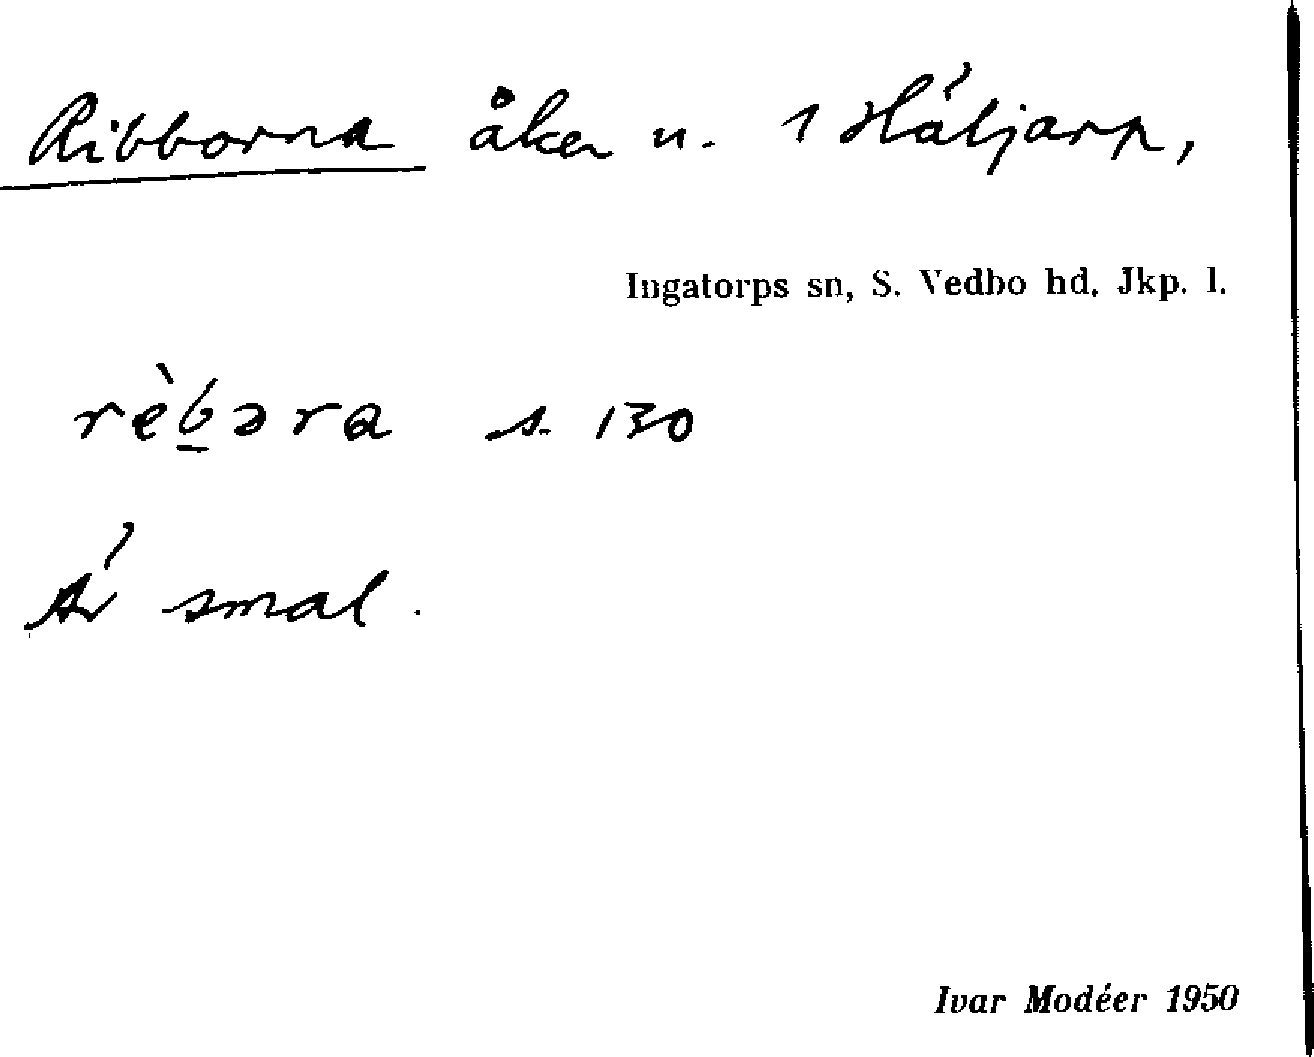 Ribborna åker u. 1 Håljarp,
Ingatorps sn, S. Vedbo hd, Jkp. l.
rèb̲əra s. 130
Är smal.
Ivar Modéer 1950